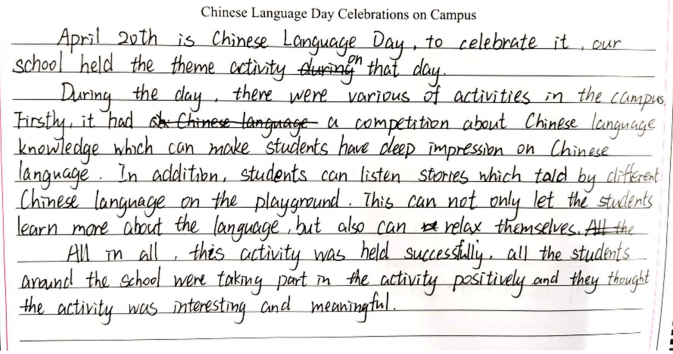 Chinese Language Day Celebrations on Campus
April 20th is Chinese Language Day, to celebrate it, our
school held the theme activity during on that day.
During the day, there were various of activities in the campus.
Firstly, it had Chinese language a competition about Chinese language
knowledge which can make students have deep impression on Chinese
language. In addition, students can listen stories which tald by different
Chinese language on the playground. This can not only let the students
learn more about the language, but also can relax themselves. All the
All in all, this activity was held successfully. all the students
around the school were taking part in the activity positively and they thought
the activity was interesting and meaningful.